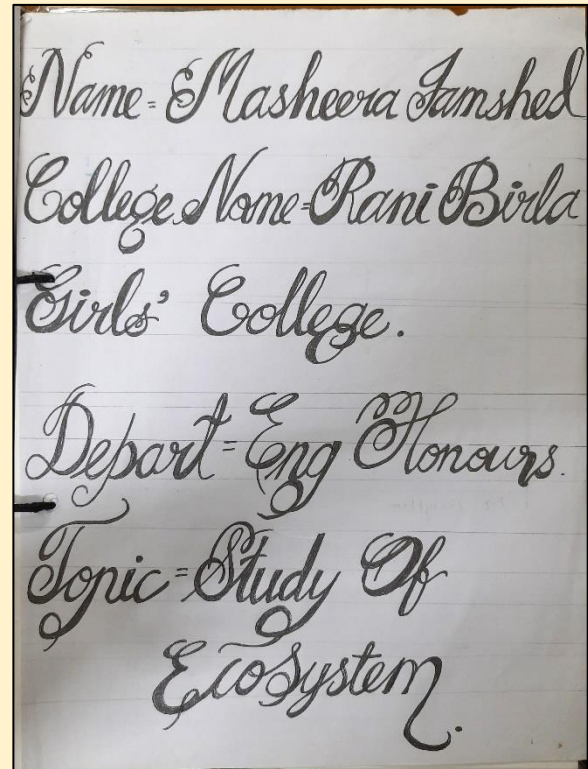 Name = Masheera Jamshed
College Name = Rani Birla
Girls' College.
Depart = Eng Honours.
Topic = Study Of
EcoSystem.